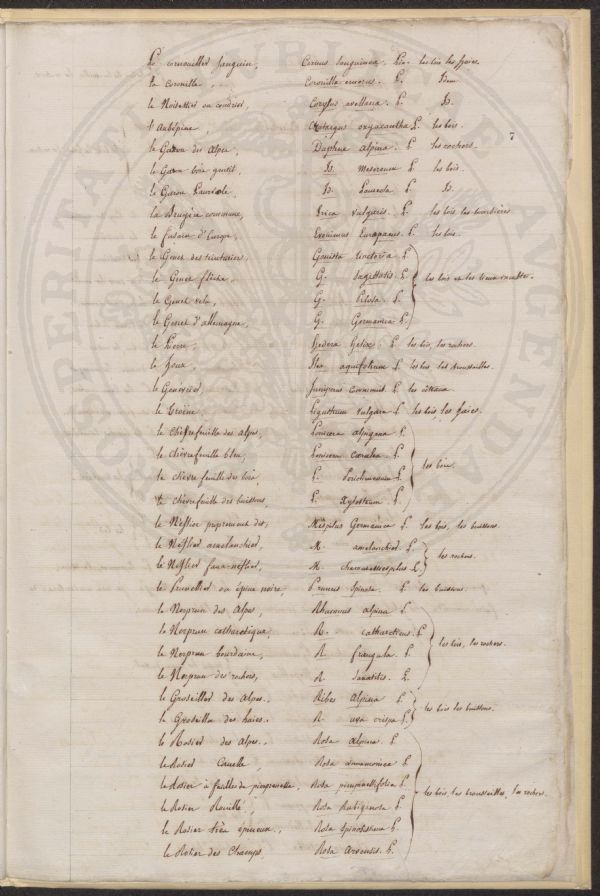 Le cornouiller sanguin, Cornus sanguinea. Lin. les bois les haies.
la Coronille, Coronilla emerus. L. Idem
le Noisettier ou coudrier, Corylus avellana. L. Id.
l'Aubépine, Crataegus oxyacantha L. les bois.
7
le Garou des alpes, Daphne alpina. L. les rochers.
le Garou bois gentil, Id. Mesereum L. les bois.
le Garou Lauréole, Id. Laureola L. Id.
la Bruyère commune, Erica vulgaris. L. les bois les bruières
le fusain d'Europe, Evonimus Europaeus. L. les bois.
le Genet des teinturiers, Genista tinctoria L.
le Genet flêche, G. Sagittalis L. les bois et les lieux
le Genet velu, G. Pilosa. L.
le Genet d'allemagne, G. Germanica L.
le Lierre, Hedera helix. L. les bois, les rochers.
le houx, Ilex aquifolium L. les bois les broussailles.
le Genevrier Juniperus communis L. les côteaux.
le Troëne, Ligustrum vulgare L. les bois, les haies.
le Chèvrefeuille des alpes, Lonicera alpigena L.
le chèvrefeuille bleu, Lonicera caerulea L. les bois.
le chèvre feuille des bois, L. Periclimenum L.
le chèvrefeuille des buissons, L. Xylosteum. L.
le Néflier proprement dit, Mespilus Germanica L. les bois, les buissons.
le Néflier amelanchier, M. amelanchier L. les rochers.
le Néflier faux-néflier, M. chamaemespilus L.
le Prunellier ou épine noire, Prunus Spinosa L. les buissons.
le Nerprun des Alpes, Rhamnus alpina L.
le Nerprun cathartique, R. catharticus L. les bois, les rochers.
le Nerprun bourdaine, R frangula. L.
le Nerprun des rochers, R saxatilis. L.
le Groseiller des alpes. Ribes Alpina L. les bois les buissons.
le Groseiller des haies. R uva crispa L.
le Rosier des Alpes., Rosa alpina L.
le Rosier Canelle, Rosa cinnamomea L.
le Rosier à feuilles de pimprenelle, Rosa pimpinellifolia L. les bois, les broussailles, les rochers.
le Rosier Rouillé, Rosa Rubiginosa L.
le Rosier très épineux, Rosa Spinosissima L.
le Rosier des Champs, Rosa Arvensis. L.